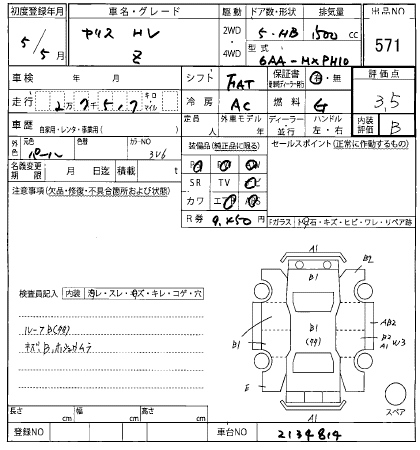 初度登録年月
5/5月
車名・グレード
ヤリス HV
Z
駆動
2WD
4WD
ドア数・形状
5・HB
排気量
1500 cc
型式
6AA-MXPH10
出品NO
571
評価点
3.5
内装評価
B
車検 年 月
走行 2万7千5.7 キロ マイル
車歴 自家用・レンタ・事業用( )
外色
元色
パール
色替
カラーNO
3U6
名義変更期限 月 日迄
積載 t
シフト
FAT
冷房
AC
保証書
有・無
燃料
G
定員
人
外車モデル
年
ディーラー
並行
ハンドル
左・右
装備品(純正品に限る)
SR TV ナビ
カワ エアB ABS
R券 9.450 円
セールスポイント(正常に作動するもの)
Fガラス 飛石・キズ・ヒビ・ワレ・リペア跡
注意事項(欠品・修復・不具合箇所および状態)
検査員記入
内装 汚レ・スレ・キズ・キレ・コゲ・穴
ルーフB(99)
A1
B1
B2
B1
(99)
AB2
B1
B2
A1
W3
E
A1
スペア
長さ cm
幅 cm
高さ cm
登録NO
車台NO
2134814